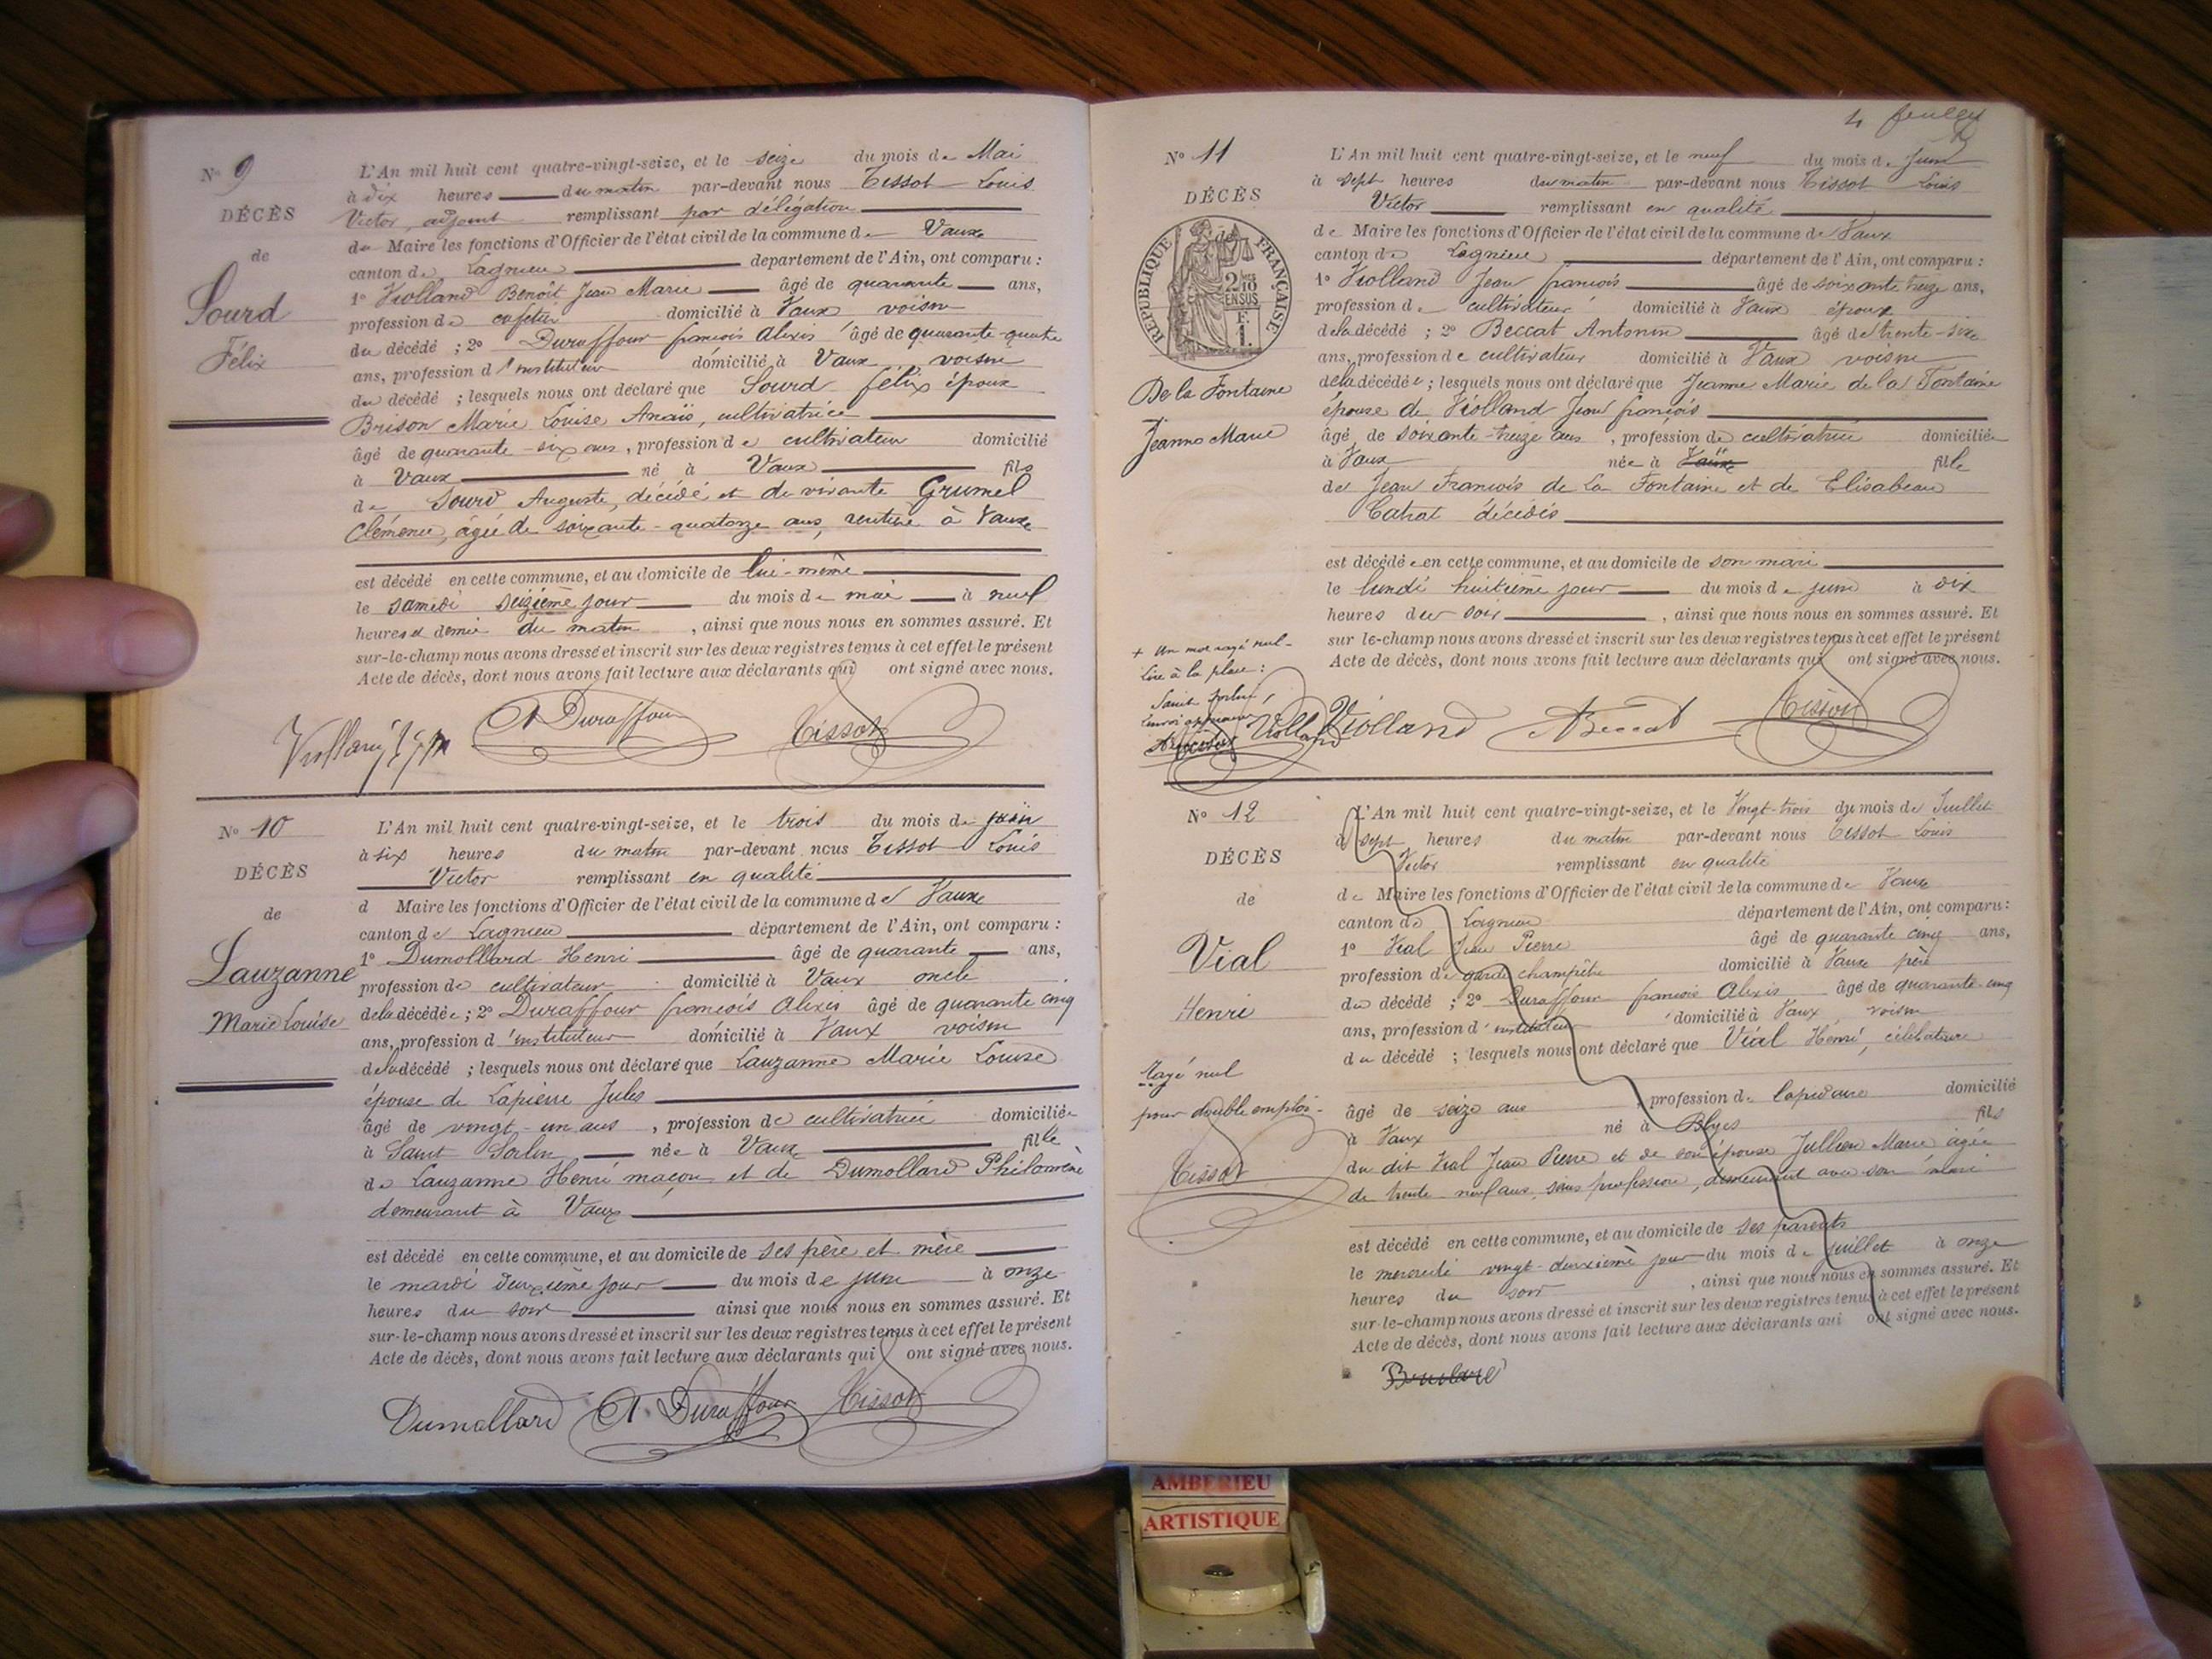 No 9
DÉCÈS
de
Sourd
Félix
L'An mil huit cent quatre-vingt-seize, et le seize du mois de Mai
à dix heures du matin par-devant nous Tissot Louis
Victor, adjoint remplissant par délégation
de Maire les fonctions d'Officier de l'état civil de la commune de Vaux
canton de Lagnieu département de l'Ain, ont comparu :
1º Violland Benoît Jean Marie âgé de quarante ans,
profession de cafetier domicilié à Vaux voisin
du décédé ; 2º Duraffour françois Alexis âgé de quarante-quatre
ans, profession d'instituteur domicilié à Vaux voisin
du décédé ; lesquels nous ont déclaré que Sourd félix époux
Brison Marie Louise Anaïs, cultivatrice
âgé de quarante-six ans, profession de cultivateur domicilié
à Vaux né à Vaux fils
de Sourd Auguste, décédé et de vivante Grumel
Clémence, âgée de soixante-quatorze ans, rentière à Vaux
est décédé en cette commune, et au domicile de lui-même
le samedi seizième jour du mois de mai à neuf
heures et demie du matin, ainsi que nous nous en sommes assuré. Et
sur-le-champ nous avons dressé et inscrit sur les deux registres tenus à cet effet le présent
Acte de décès, dont nous avons fait lecture aux déclarants qui ont signé avec nous.
A Duraffour Tissot
No 10
DÉCÈS
de
Lauzanne
Marie Louise
L'An mil huit cent quatre-vingt-seize, et le trois du mois de juin
à six heures du matin par-devant nous Tissot Louis
Victor remplissant en qualité
d Maire les fonctions d'Officier de l'état civil de la commune de Vaux
canton de Lagnieu département de l'Ain, ont comparu :
1º Dumollard Henri âgé de quarante ans,
profession de cultivateur domicilié à Vaux oncle
de la décédée ; 2º Duraffour françois Alexis âgé de quarante cinq
ans, profession d'instituteur domicilié à Vaux voisin
de la décédé ; lesquels nous ont déclaré que Lauzanne Marie Louise
épouse de Lapierre Jules
âgé de vingt-un ans, profession de cultivatrice domiciliée
à Saint Sorlin née à Vaux fille
de Lauzanne Henri maçon et de Dumollard Philomène
demeurant à Vaux
est décédé en cette commune, et au domicile de ses père et mère
le mardi deuxième jour du mois de juin à onze
heures du soir ainsi que nous nous en sommes assuré. Et
sur-le-champ nous avons dressé et inscrit sur les deux registres tenus à cet effet le présent
Acte de décès, dont nous avons fait lecture aux déclarants qui ont signé avec nous.
Dumollard A. Duraffour Tissot
4 feuillet
No 11
DÉCÈS
de
RÉPUBLIQUE FRANÇAISE
2/10 EN SUS
F.
1.
De la Fontaine
Jeanne Marie
L'An mil huit cent quatre-vingt-seize, et le neuf du mois de Juin
à sept heures du matin par-devant nous Tissot Louis
Victor remplissant en qualité
de Maire les fonctions d'Officier de l'état civil de la commune de Vaux
canton de Lagnieu département de l'Ain, ont comparu :
1º Violland Jean françois âgé de soixante treize ans,
profession de cultivateur domicilié à Vaux époux
de la décédé ; 2º Beccat Antonin âgé de trente-six
ans, profession de cultivateur domicilié à Vaux voisin
de la décédée ; lesquels nous ont déclaré que Jeanne Marie de la Fontaine
épouse de Violland Jean françois
âgé de soixante-treize ans, profession de cultivatrice domiciliée
à Vaux née à Vaux fille
de Jean François de La Fontaine et de Elisabeau
Catrat décédés
est décédée en cette commune, et au domicile de son mari
le lundi huitième jour du mois de juin à dix
heures du soir, ainsi que nous nous en sommes assuré. Et
sur le-champ nous avons dressé et inscrit sur les deux registres tenus à cet effet le présent
Acte de décès, dont nous avons fait lecture aux déclarants qui ont signé avec nous.
+ un mot rayé nul-
Lire à la place :
Saint Sorlin,
Violland Violland A Beccat Tissot
No 12
DÉCÈS
de
Vial
Henri
Rayé nul
pour double emploi-
Tissot
L'An mil huit cent quatre-vingt-seize, et le Vingt-trois du mois de Juillet
à sept heures du matin par-devant nous Tissot Louis
Victor remplissant en qualité
de Maire les fonctions d'Officier de l'état civil de la commune de Vaux
canton de Lagnieu département de l'Ain, ont comparu :
1º Vial Jean Pierre âgé de quarante cinq ans,
profession de garde champêtre domicilié à Vaux père
du décédé ; 2º Duraffour françois Alexis âgé de quarante-cinq
ans, profession d'instituteur domicilié à Vaux voisin
du décédé ; lesquels nous ont déclaré que Vial Henri, célibataire
âgé de seize ans, profession de lapidaire domicilié
à Vaux né à Blyes fils
du dit Vial Jean Pierre et de son épouse Jullien Marie âgée
de trente neuf ans, sans profession, demeurant avec son mari
est décédé en cette commune, et au domicile de ses parents
le mercredi vingt-deuxième jour du mois de juillet à onze
heures du soir, ainsi que nous nous en sommes assuré. Et
sur-le-champ nous avons dressé et inscrit sur les deux registres tenus à cet effet le présent
Acte de décès, dont nous avons fait lecture aux déclarants qui ont signé avec nous.
AMBERIEU
ARTISTIQUE